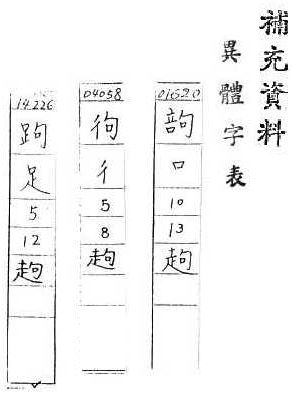 補充資料
異體字表
01620
口
10
13
04058
彳
5
8
14226
跔
足
5
12